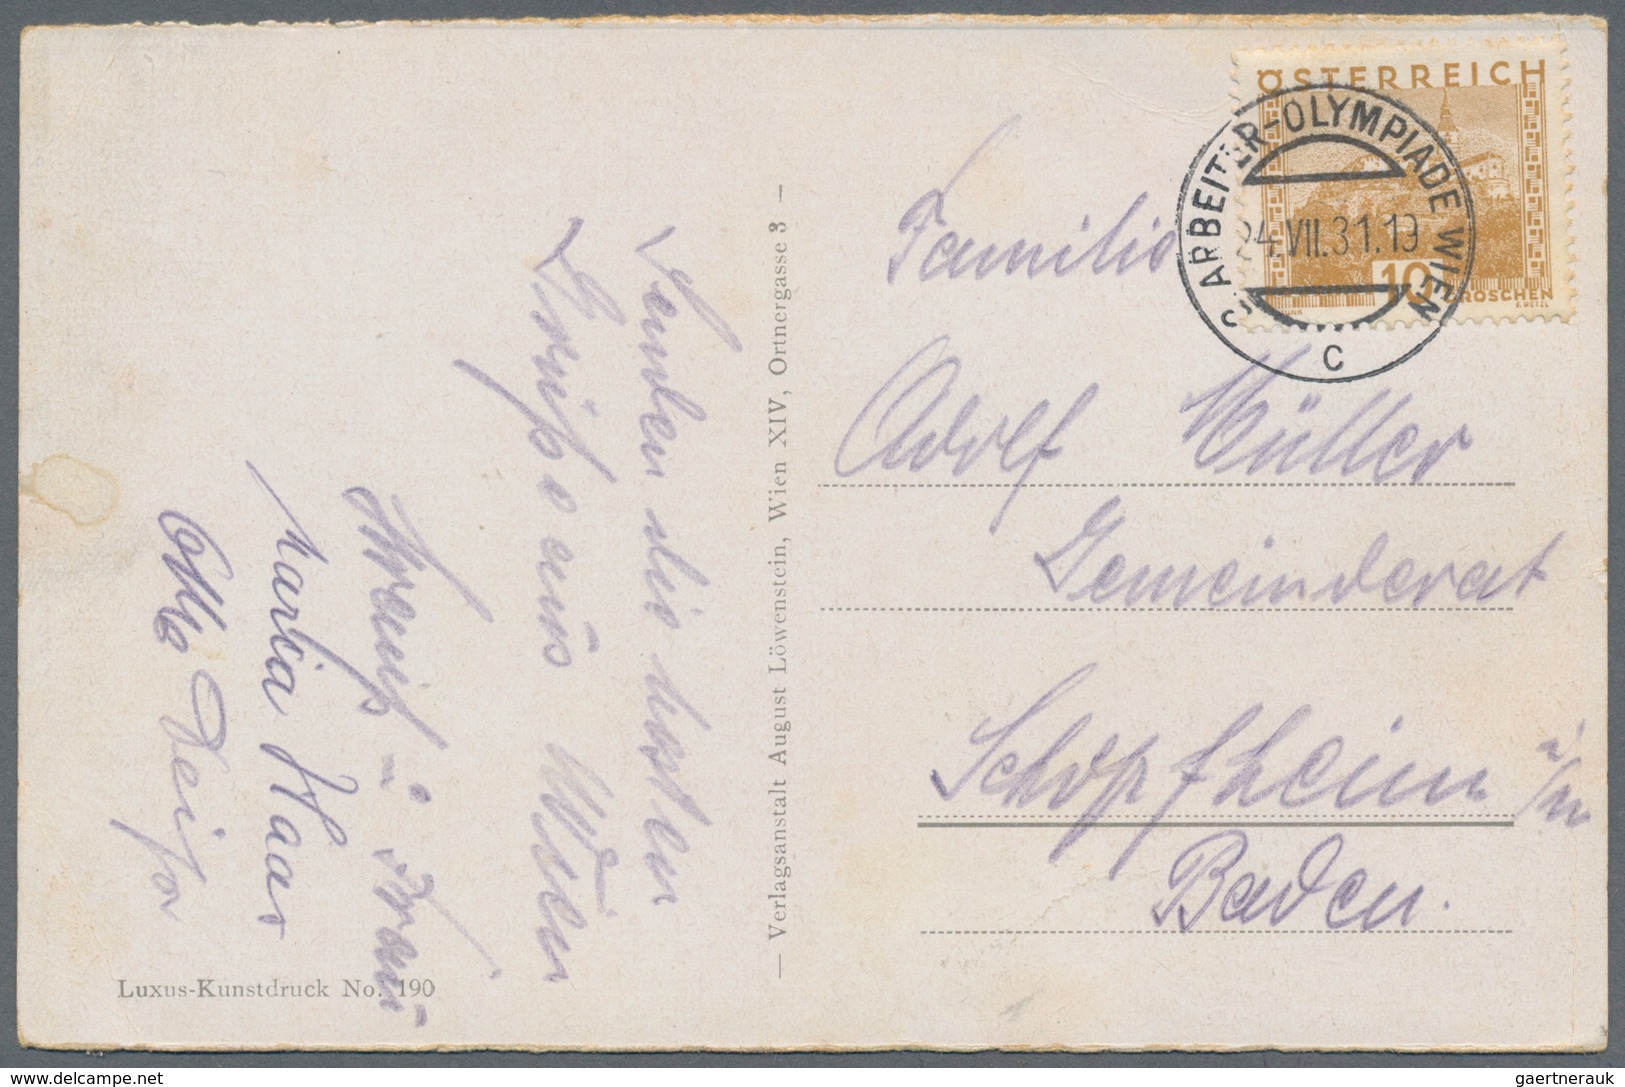 Senden die besten
Grüße aus Wien
u. Frau
Maria Haas
Luxus-Kunstdruck No. 190
— Verlagsanstalt August Löwenstein, Wien XIV, Ortnergasse 3 —
ÖSTERREICH
10 GROSCHEN
ARBEITER-OLYMPIADE WIEN
24.VII.31.19
C
Familie
Adolf Müller
Gemeinderat
Schopfheim i/W
Baden.
www.delcampe.net
gaertnerauk